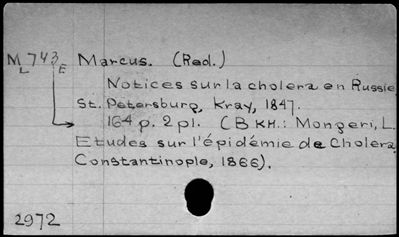 M 743 Marcus. (Red.)
L E
Notices sur la cholera en Russie
St. Petersburg, Kray, 1847.
164 p. 2 pl. (В кн.: Mongeri, L.
Etudes sur l'épidémie de Cholera
Constantinople, 1866).
2972